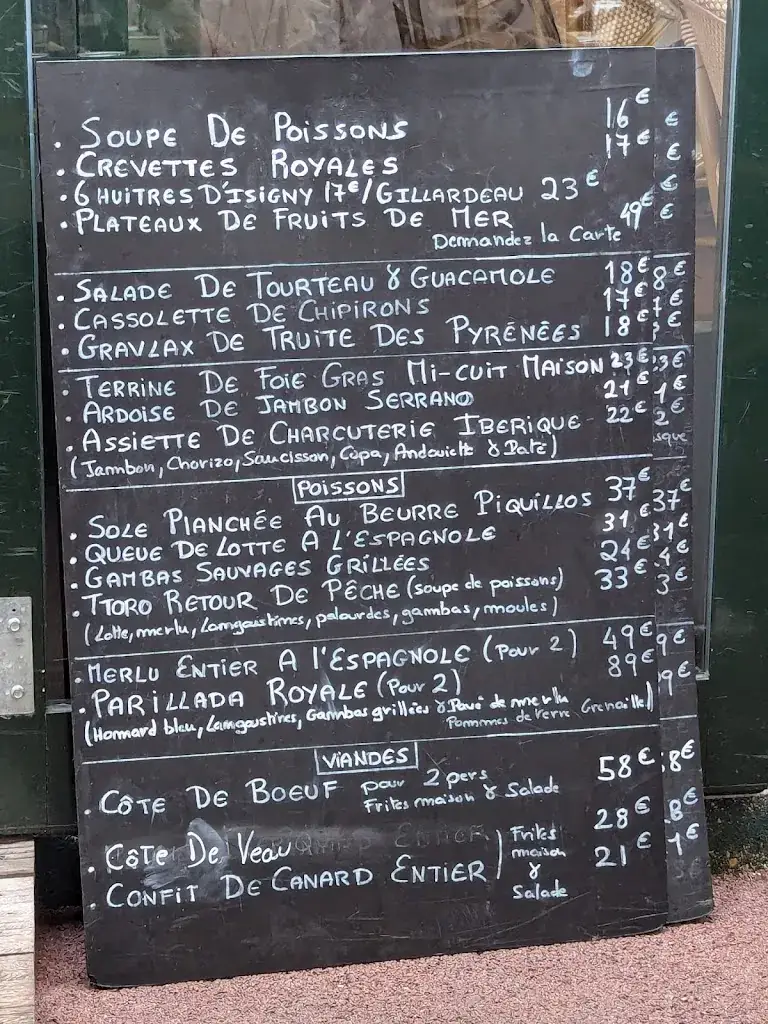 . SOUPE DE POISSONS 16€
. CREVETTES ROYALES 17€
. 6 HUITRES D'ISIGNY 17€/GILLARDEAU 23€
. PLATEAUX DE FRUITS DE MER 49€
Demandez la Carte
. SALADE DE TOURTEAU & GUACAMOLE 18€
. CASSOLETTE DE CHIPIRONS 17€
. GRAVLAX DE TRUITE DES PYRÉNÉES 18€
. TERRINE DE FOIE GRAS MI-CUIT MAISON 23€
. ARDOISE DE JAMBON SERRANO 21€
. ASSIETTE DE CHARCUTERIE IBERIQUE 22€
(Jambon, Chorizo, Saucisson, Copa, Andouille & Paté)
POISSONS
. SOLE PLANCHÉE AU BEURRE PIQUILLOS 37€
. QUEUE DE LOTTE A L'ESPAGNOLE 31€
. GAMBAS SAUVAGES GRILLÉES 24€
. TTORO RETOUR DE PÊCHE (soupe de poissons) 33€
(Lotte, merlu, Langoustines, palourdes, gambas, moules)
. MERLU ENTIER A l'ESPAGNOLE (Pour 2) 49€
. PARILLADA ROYALE (Pour 2) 89€
(Hommard bleu, Langoustines, Gambas grillées & Pavé de merlu
Pommes de terre Grenaille)
VIANDES
. CÔTE DE BOEUF pour 2 pers 58€
Frites maison & Salade
. CÔTE DE Veau 28€
. CONFIT DE CANARD ENTIER 21€
) Frites
maison
&
Salade